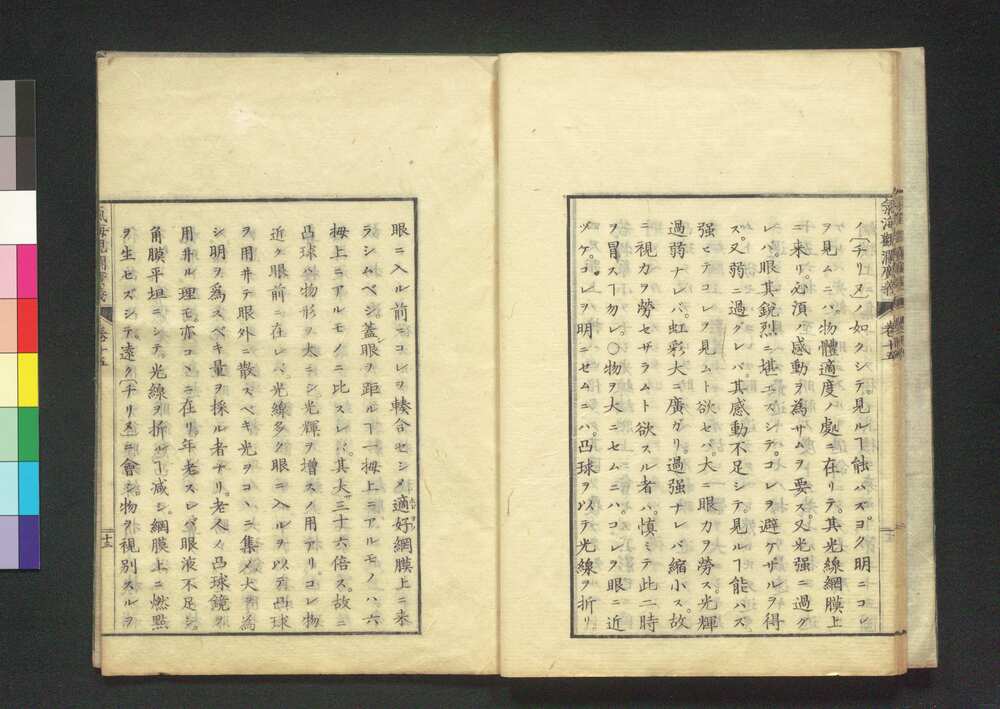 氣海觀瀾廣義　卷十五
ノ〔チリヌ〕ノ如クシテ。見ルヿ能ハズ。ヨク明ニコレ
ヲ見ムニハ。物體適度ノ處ニ在リテ。其光線網膜上
ニ來リ。必湏ノ感動ヲ為サムヲ要ス。又光强ニ過グ
レバ。眼其銳烈ニ堪エズシテ。コレヲ避ケザルヲ得
ズ。又弱ニ過グレバ。其感動不足シテ見ルヿ能ハズ。
强ヒテコレヲ見ムト欲セバ。大ニ眼力ヲ勞ス。光輝
過弱ナレバ。虹彩大ニ廣ガリ。過强ナレバ縮小ス。故
ニ視力ヲ勞セザラムト欲スル者ハ。慎ミテ此二時
ヲ冒スヿ勿レ。〇物ヲ大ニセムニハコレヲ眼ニ近
ヅケ。コレヲ明ニセムニハ。凸球ヲ以テ光線ヲ折リ。
眼ニ入ル前ニコレヲ輳合セシメ。適好網膜上ニ來
ラシムベシ。蓋眼ヲ距ルヿ一拇上ニアルモノハ。六
拇上ニアルモノニ比スレバ。其大三十六倍ス。故ニ
凸球ハ物形ヲ大ニシ光輝ヲ增スノ用アリ。コレ物
近ク眼前ニ在レバ。光線多ク眼ニ入ルヲ以テ。凸球
ヲ用井テ眼外ニ散スベキ光ヲコヽニ集メ。大ヲ為
シ明ヲ爲スベキ量ヲ採ル者ナリ。老人ノ凸球鏡ヲ
用井ル理モ。亦コヽニ在リ。年老スレバ。眼液不足シ。
角膜平坦ニシテ。光線ヲ折ルヿ減ジ。網膜上ニ燃點
ヲ生セズシテ。遠ク〔チリヌ〕ニ會シ。物ヲ視別スルヲ
卷十五
十五